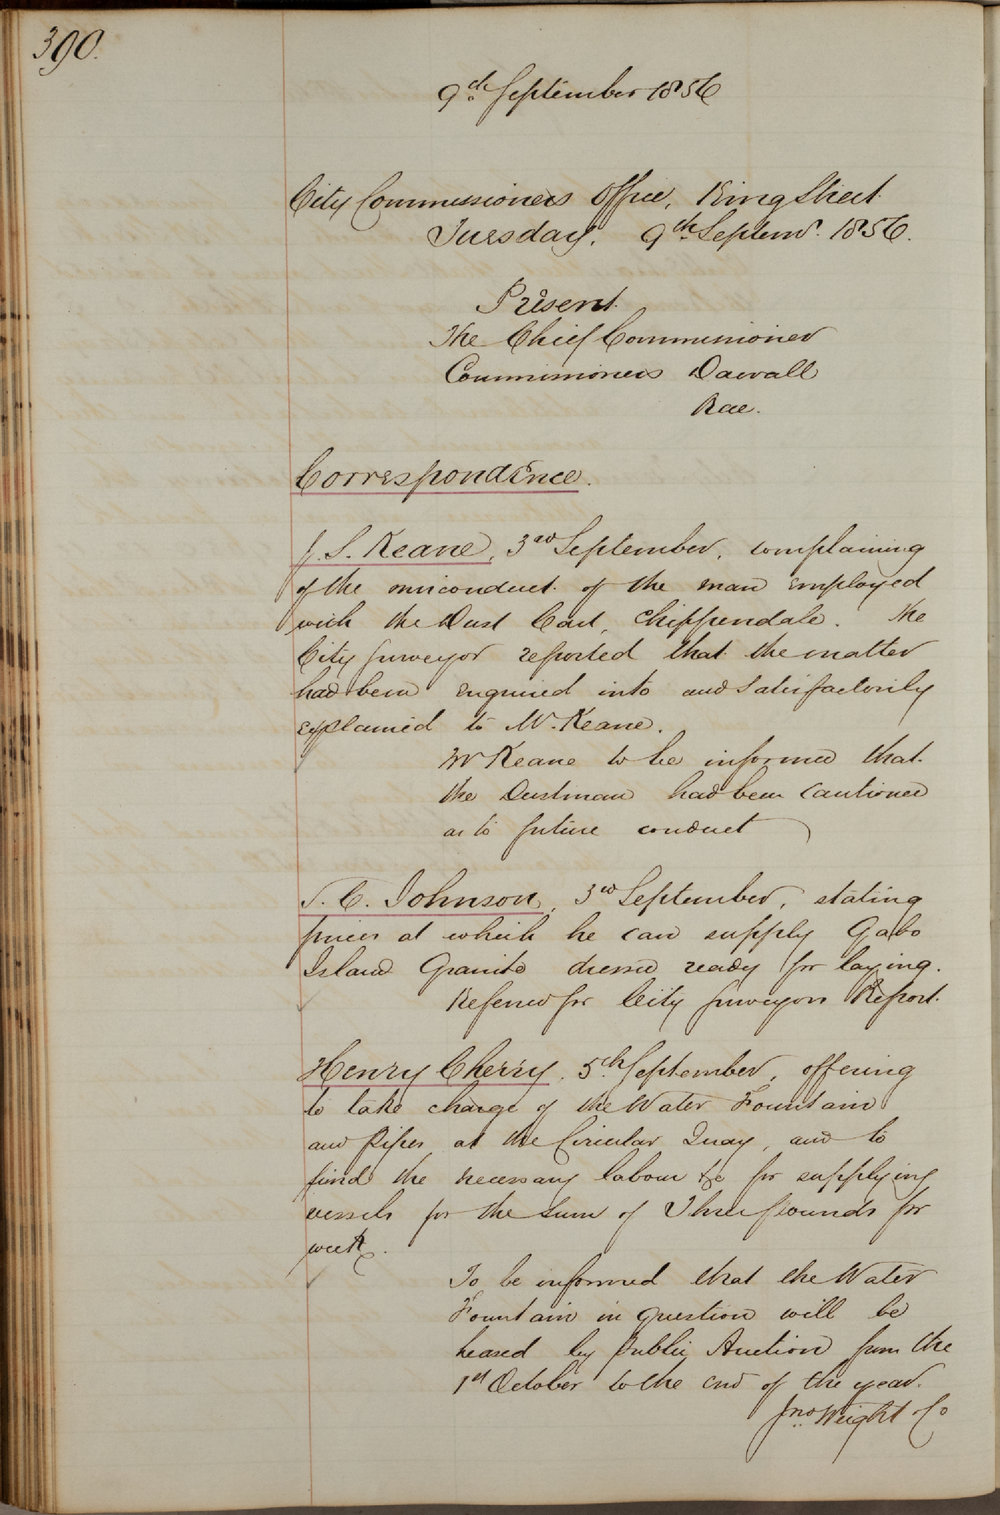 390.
9th September 1856
City Commissioners Office, King Street
Tuesday, 9th Septemr. 1856.
Present.
The Chief Commissioner
Commissioners Davall
Rae.
Correspondence.
J. S. Keane, 3rd September, complaining
of the misconduct of the man employed
with the Dust Cart, Chippendale. The
City Surveyor reported that the matter
had been enquired into and satisfactorily
explained to Mr. Keane.
Mr Keane to be informed that
the Dustman had been cautioned
as to future conduct
C. Johnson, 3rd September, stating
prices at which he can supply Gabo
Island Granite dressed ready for laying.
Referred for City Surveyors Report.
Henry Cherry, 5th September, offering
to take charge of the Water Fountain
and Pipes at the Circular Quay, and to
find the necessary labour &c for supplying
vessels for the sum of Three pounds per
week.
To be informed that the Water
Fountain in question will be
leased by Public Auction from the
1st October to the end of the year.
Jno Wright